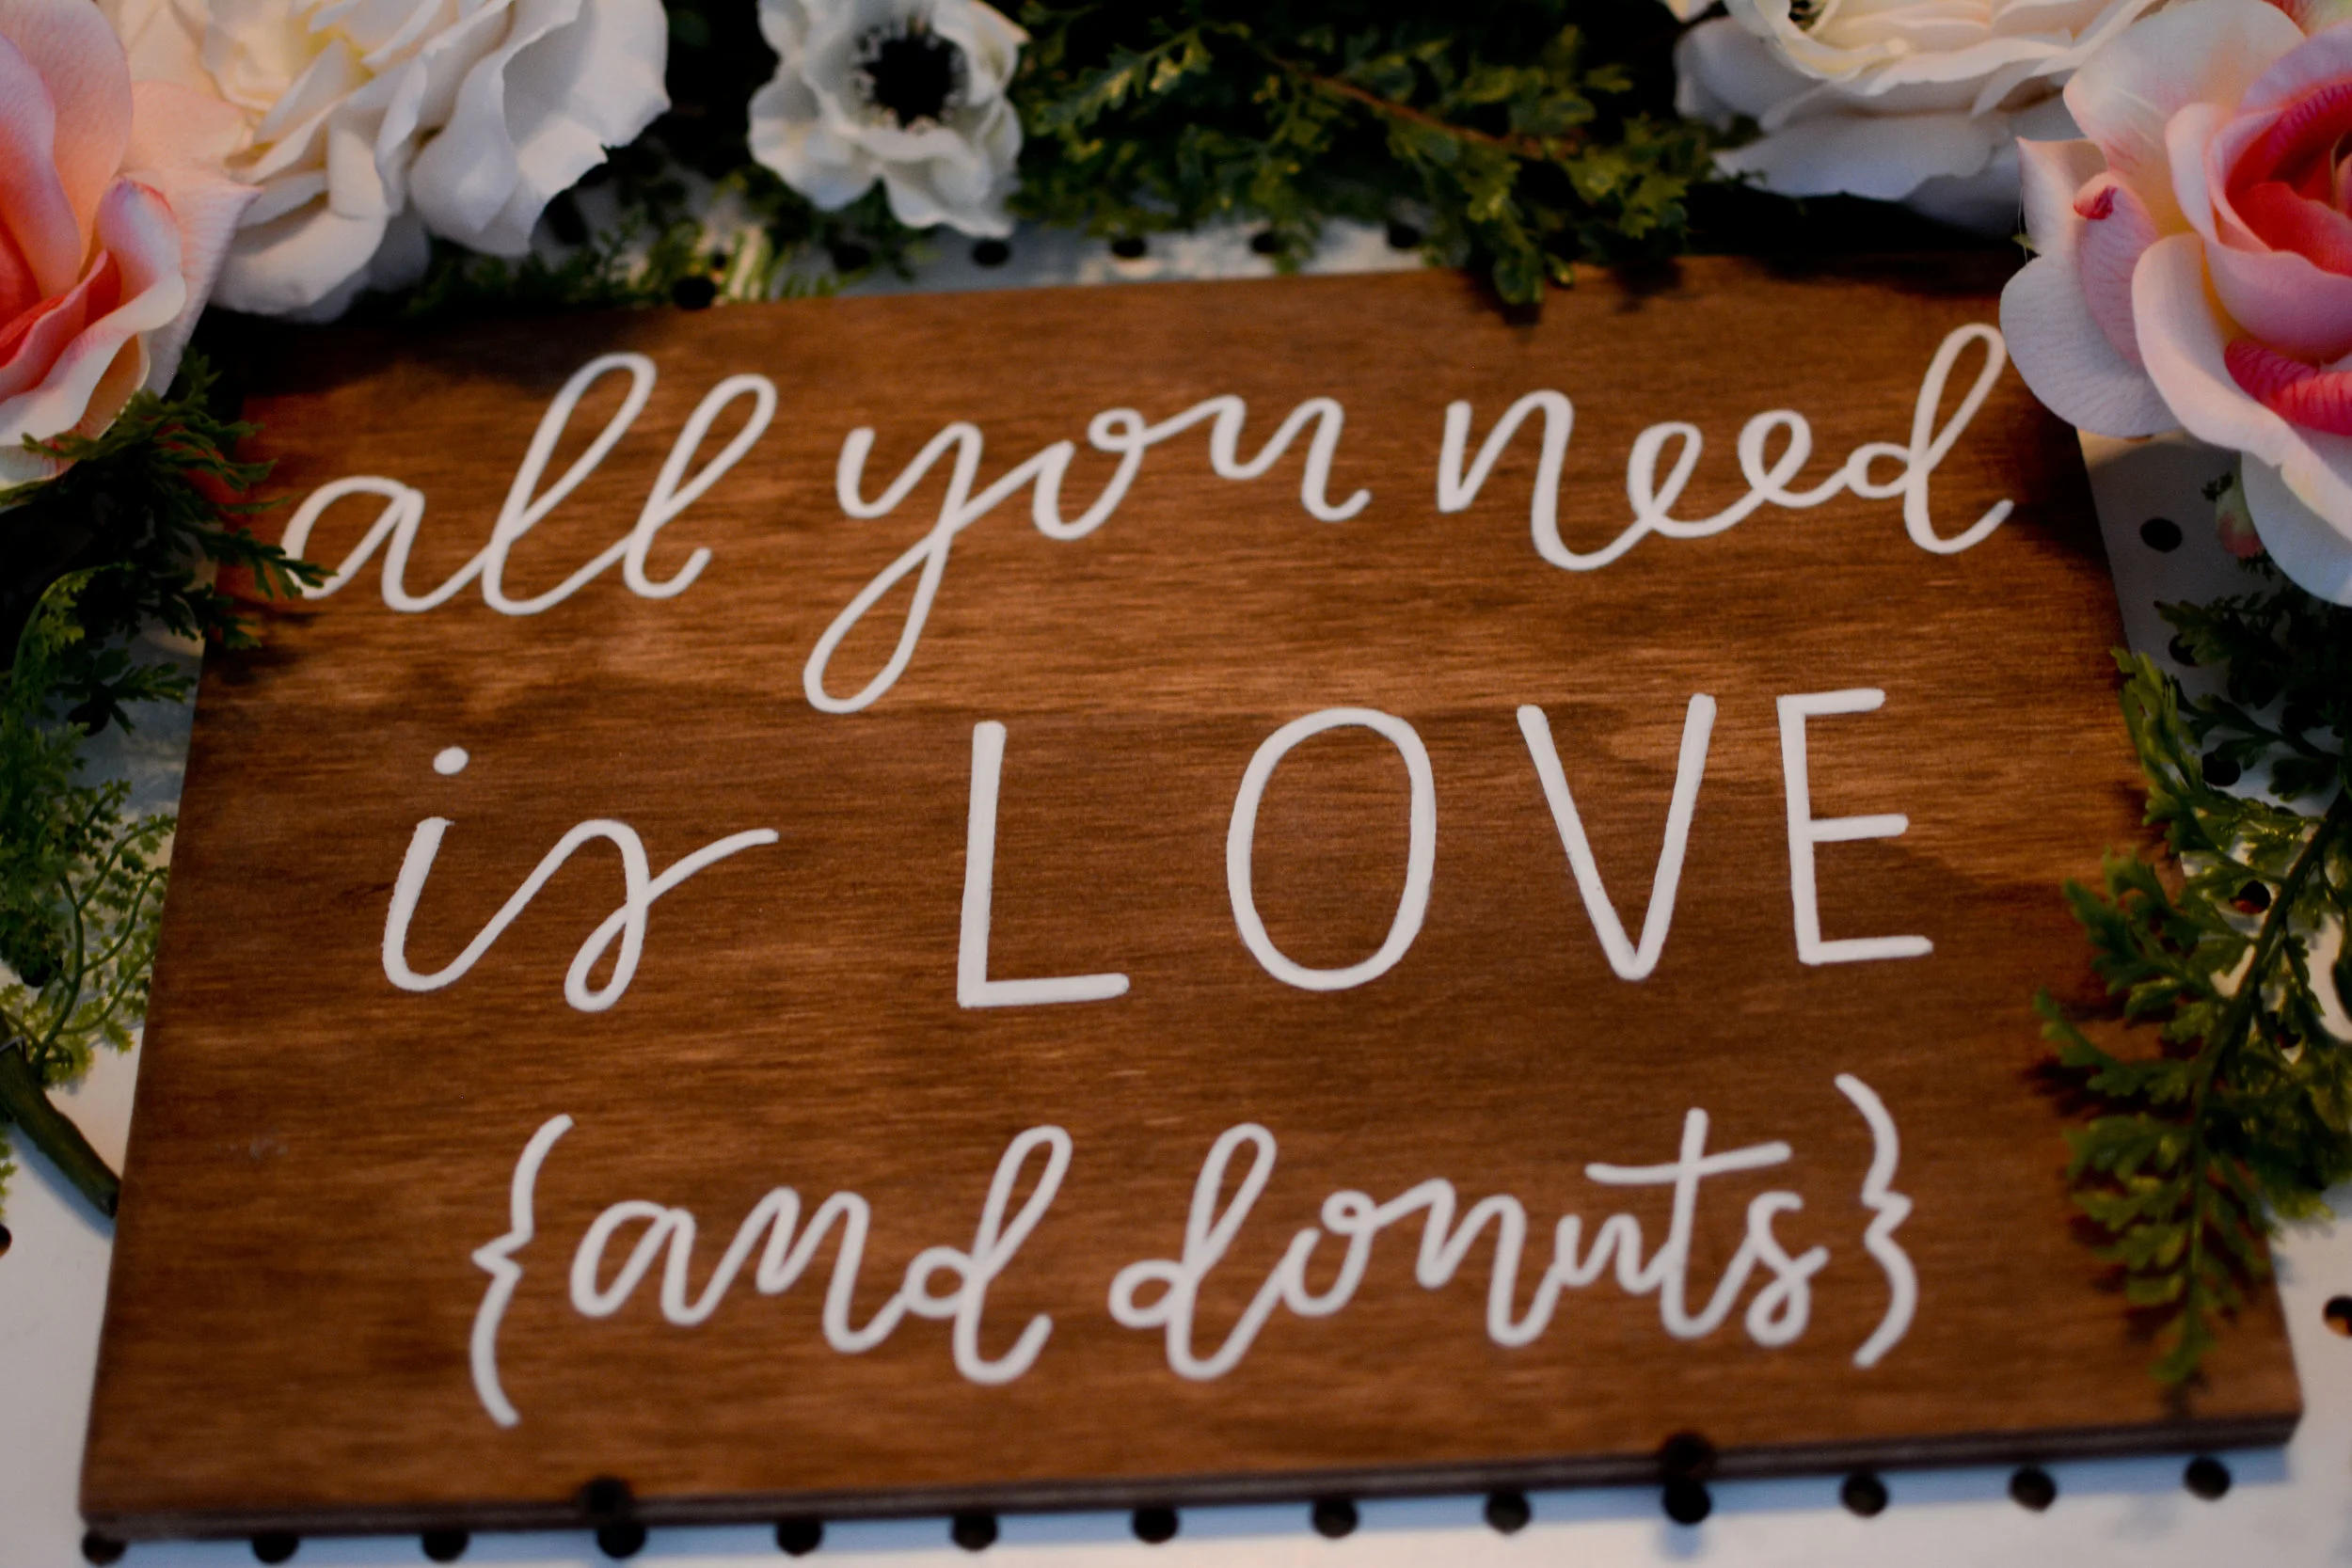 all you need
is LOVE
{and donuts}